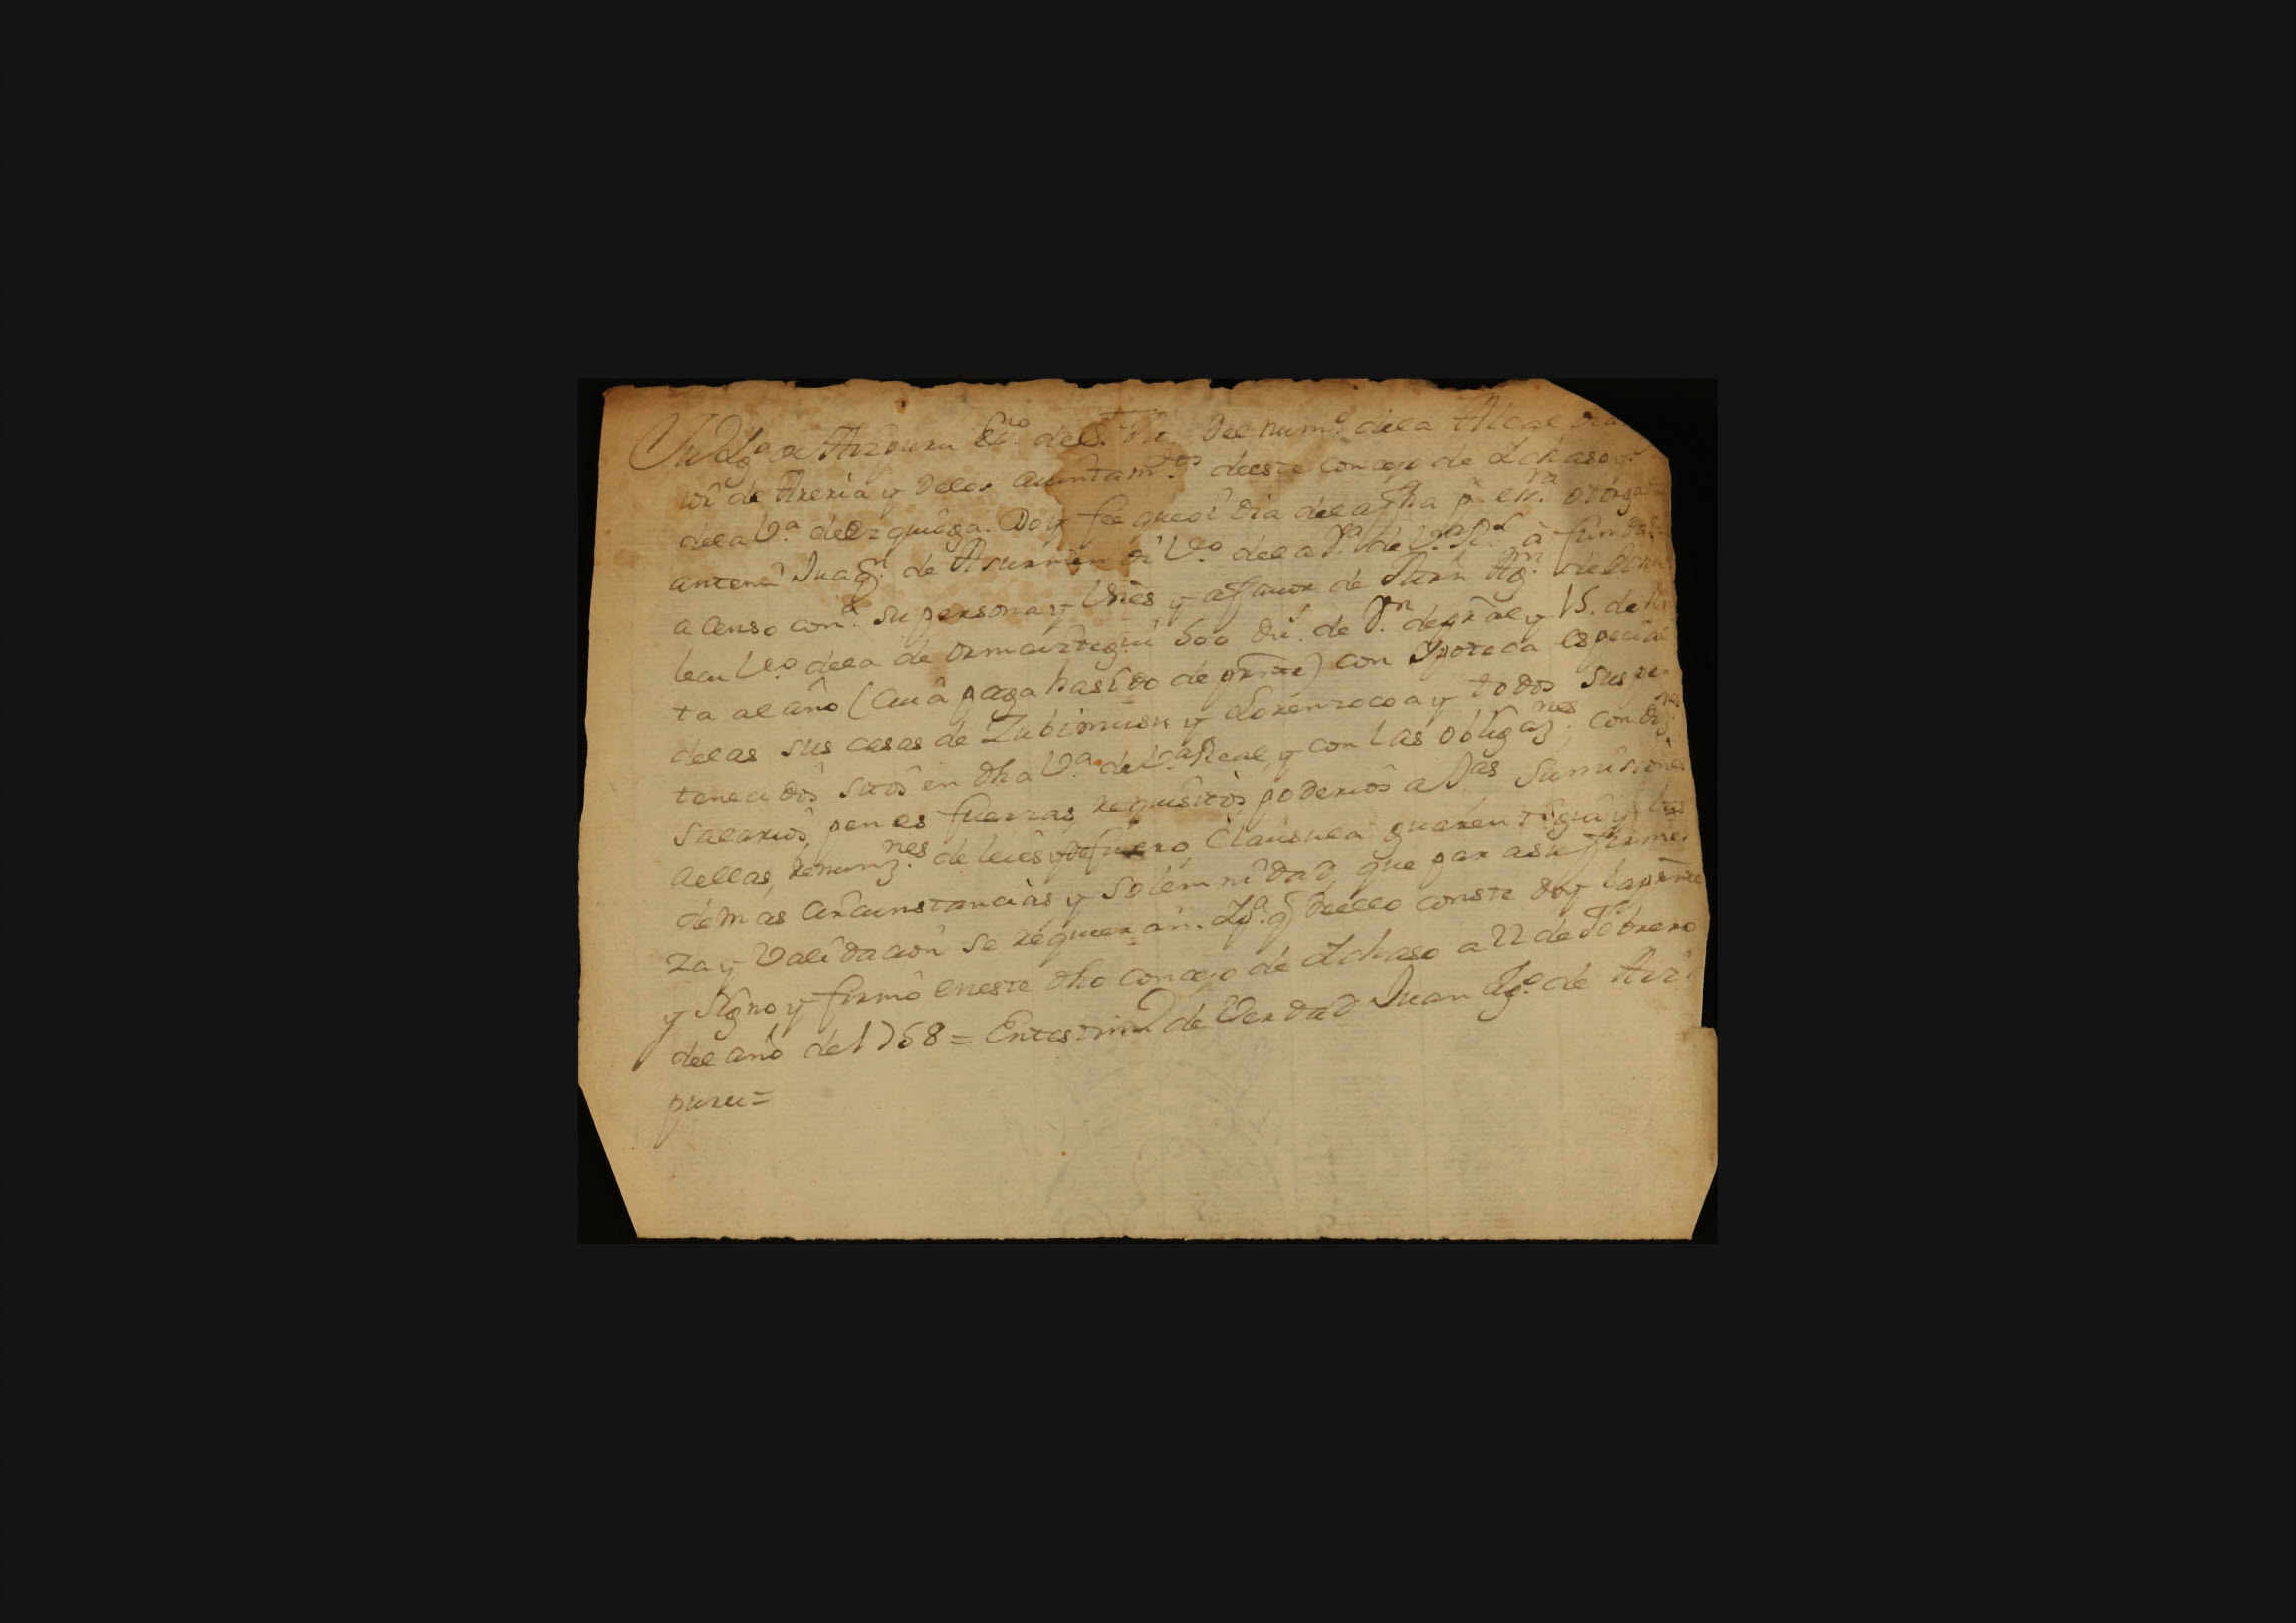 Ju Ygº de Aizpuru Essno del S. del numº dela Alcaldia
ior de Areria y delos aiuntamtos deeste concejo de Ychaso y
dela Vª deEzquioga. Doy fee queoi dia dela fha pr. essra otorgada
antemi Juaqn de Asurmendi Vº dela Vª de Vª Rl à fundado
a censo conª su persona y Vnes y a fauor de Agn de
leku Vº dela de ormaiztegui 500 du. de Pn deprâl y 15. de
ta al año (Cuia paga hasido de prnte) con Ypoteca especial
delas sus casas de Zubimusu y Lorenzocoa y todos suspe
tenecidos sitos en dha Vª de Vª Real, y con las obligaznes, condiznes
Salarios, penas fuerzas, requisitos, poderios a Jas Sumisiones
aellas, renunznes de leies y de fuero, Clausula guarentigia y las
demas circunstancias y Solemnidad, que para su firme
za y Validacion se requieran. Ypª q dello conste doy laprnte
y signo y firmo eneste dho concejo de Ychaso a 22 de Febrero
del año de 1768 = Entestimº de Verdad Juan Ygº de Aiz
puru =